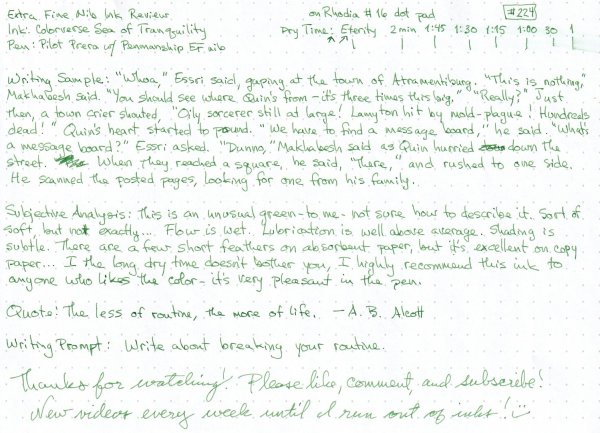 Extra Fine Nib Ink Review on Rhodia #16 dot pad #224
Ink: Colorverse Sea of Tranquility Dry Time: Eterity 2 min 1:45 1:30 1:15 1:00 30 1
Pen: Pilot Prera w/ Penmanship EF nib
Writing Sample: "Whoa," Essri said, gaping at the town of Atramentiburg. "This is nothing,"
Makhabesh said. "You should see where Quin's from - it's three times this big." "Really?" Just
then, a town crier shouted, "Oily sorcerer still at large! Lamyton hit by mold-plague! Hundreds
dead!" Quin's heart started to pound. "We have to find a message board," he said. "What's
a message board?" Essri asked. "Dunno," Makhabesh said as Quin hurried down the
street. When they reached a square, he said, "There," and rushed to one side.
He scanned the posted pages, looking for one from his family.
Subjective Analysis: This is an unusual green - to me - not sure how to describe it. Sort of
soft, but not exactly... Flow is wet. Lubrication is well above average. Shading is
subtle. There are a few short feathers on absorbent paper, but it's excellent on copy
paper... I the long dry time doesn't bother you, I highly recommend this ink to
anyone who likes the color - it's very pleasant in the pen.
Quote: The less of routine, the more of life. - A. B. Alcott
Writing Prompt: Write about breaking your routine.
Thanks for watching! Please like, comment, and subscribe!
New videos every week until I run out of inks! :)